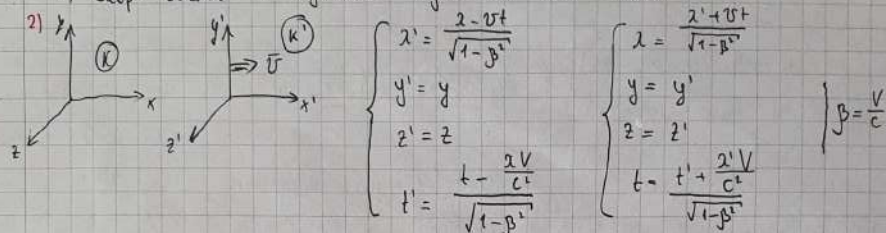 2)
y
K
x
z
y'
K'
v̄
x'
z'
x' = (x - vt) / √(1-β²)
y' = y
z' = z
t' = (t - xV/c²) / √(1-β²)
x = (x' + vt) / √(1-β²)
y = y'
z = z'
t = (t' + x'V/c²) / √(1-β²)
β = V/c